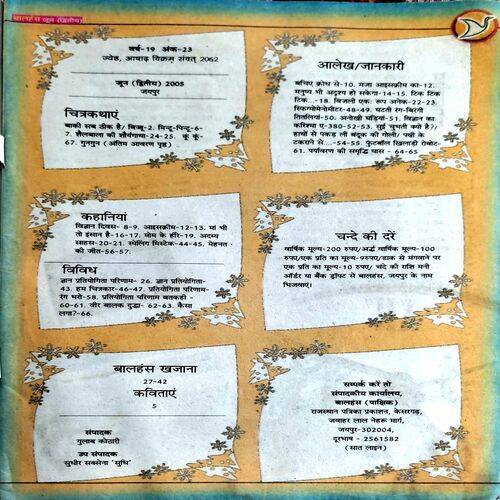 बालहंस जून (द्वितीय)
वर्ष-19 अंक-23
ज्येष्ठ, आषाढ़ विक्रम संवत् 2062
जून (द्वितीय) 2005
जयपुर
चित्रकथाएं
बाकी सब ठीक है/ बिज्जू-2. मिन्टू-पिन्टू-6-
7. शैलबाला की शौर्यगाथा-24-25. कूं कूं-
67. गुनगुन (अंतिम आवरण पृष्ठ)
आलेख/जानकारी
बचिए क्रोध से-10. मजा आइसक्रीम का-12.
मनुष्य भी अदृश्य हो सकेगा-14-15. टिक टिक
टिक...-18. बिजली एक: रूप अनेक-22-23.
स्फिग्मोमेनोमीटर-48-49. घटती रंग-बिरंगी
तितलियां-50. अनोखी घड़ियां-51. विज्ञान का
करिश्मा ए-380-52-53. सुई चुभती क्यों है?/
हाथों से पकड़ ली बंदूक की गोली/ पक्षी के
टकराने से...-54-55. फुटबॉल खिलाड़ी रोबोट-
61. पर्यावरण की समृद्धि घास - 64-65
कहानियां
विज्ञान दिवस- 8-9. आइसक्रीम-12-13. मां भी
तो इंसान है-16-17. मोम के हीरे-19. अदम्य
साहस-20-21. स्पेलिंग मिस्टेक-44-45. मेहनत
की जीत-56-57.
विविध
ज्ञान प्रतियोगिता परिणाम- 26. ज्ञान प्रतियोगिता-
43. हम चित्रकार-46-47. प्रतियोगिता परिणाम-
रंग भरो-58. प्रतियोगिता परिणाम बतकही -
60-61. वीर बालक दुद्धा- 62-63. कैसा
लगा?-66.
चन्दे की दरें
वार्षिक मूल्य-200 रुपए/अर्द्ध वार्षिक मूल्य-100
रुपए/एक प्रति का मूल्य-9रुपए/डाक से मंगवाने पर
एक प्रति का मूल्य-10 रुपए/ चंदे की राशि मनी
ऑर्डर या बैंक ड्रॉफ्ट से बालहंस, जयपुर के नाम
भिजवाएं।
बालहंस खजाना
27-42
कविताएं
5
संपादक
गुलाब कोठारी
उप संपादक
सुधीर सक्सेना 'सुधि'
सम्पर्क करें तो
संपादकीय कार्यालय,
बालहंस (पाक्षिक)
राजस्थान पत्रिका प्रकाशन, केसरगढ़,
जवाहर लाल नेहरू मार्ग,
जयपुर-302004,
दूरभाष - 2561582
(सात लाइन)